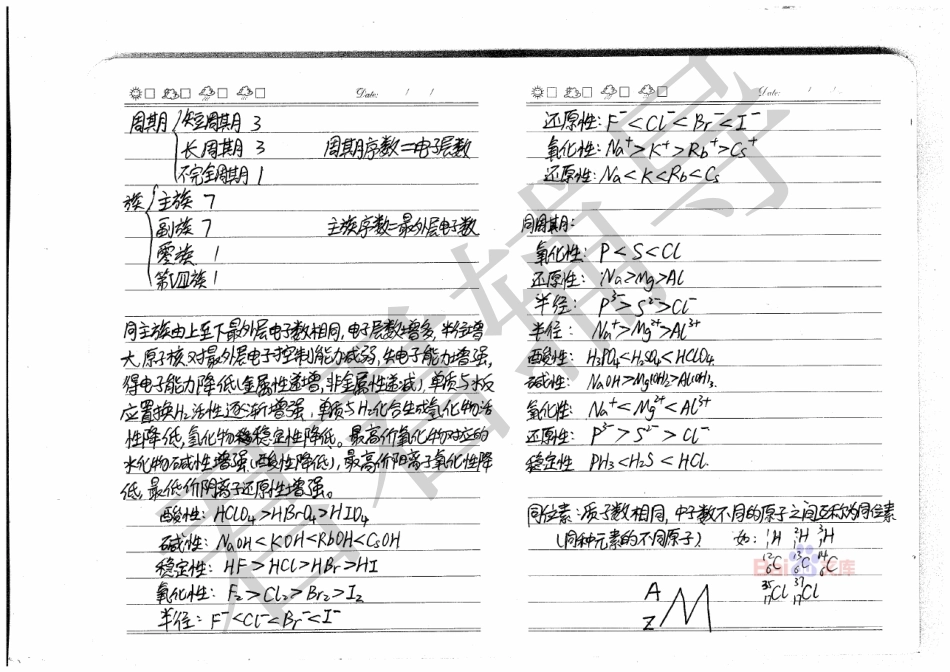 Date: / /
周期 短周期 3
长周期 3 周期序数=电子层数
不完全周期 1
族 主族 7
副族 7 主族序数=最外层电子数
零族 1
第Ⅷ族 1
同主族由上至下最外层电子数相同,电子层数增多,半径增
大,原子核对最外层电子控制能力减弱,失电子能力增强,
得电子能力降低(金属性递增,非金属性递减),单质与水反
应置换H₂活性逐渐增强,单质与H₂化合生成氢化物活
性降低,氢化物稳定性降低。最高价氧化物对应的
水化物碱性增强(酸性降低),最高价阳离子氧化性降
低,最低价阴离子还原性增强。
酸性: HClO₄>HBrO₄>HIO₄
碱性: NaOH<KOH<RbOH<CsOH
稳定性: HF>HCl>HBr>HI
氧化性: F₂>Cl₂>Br₂>I₂
半径: F⁻<Cl⁻<Br⁻<I⁻
Date: / /
还原性: F⁻<Cl⁻<Br⁻<I⁻
氧化性: Na⁺>K⁺>Rb⁺>Cs⁺
还原性: Na<K<Rb<Cs
同周期:
氧化性: P<S<Cl
还原性: Na>Mg>Al
半径: P³⁻>S²⁻>Cl⁻
半径: Na⁺>Mg²⁺>Al³⁺
酸性: H₃PO₄<H₂SO₄<HClO₄
碱性: NaOH>Mg(OH)₂>Al(OH)₃
氧化性: Na⁺<Mg²⁺<Al³⁺
还原性: P³⁻>S²⁻>Cl⁻
稳定性 PH₃<H₂S<HCl
同位素:质子数相同,中子数不同的原子之间互称为同位素
(同种元素的不同原子) 如: ¹₁H ²₁H ³₁H
¹²₆C ¹³₆C ¹⁴₆C
³⁵₁₇Cl ³⁷₁₇Cl
A
Z M
Bai 文库